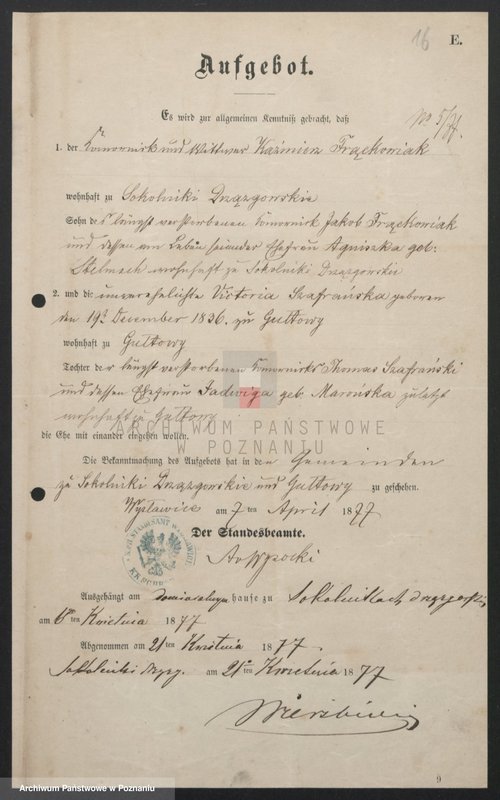 16
E.
Aufgebot.
Es wird zur allgemeinen Kenntniß gebracht, daß
No 5/77.
1. der Komornik und Wittwer Kaźmierz Frąckowiak
wohnhaft zu Sokolniki Drązgowskie
Sohn des längst verstorbenen Komornick Jakob Frąckowiak
und dessen am Leben seiender Ehefrau Agniszka geb:
Stelmach wohnhaft zu Sokolniki Drązgowskie
2. und die unverehelichte Victoria Szafrańska geboren
den 19t December 1836. zu Gułtowy
wohnhaft zu Gułtowy
Tochter der längst verstorbenen Komorniks Thomas Szafrański
und dessen Ehefrau Jadwiga geb. Marońska zuletzt
wohnhaft zu Gułtowy
die Ehe mit einander eingehen wollen.
ARCHIWUM PAŃSTWOWE
W POZNANIU
Die Bekanntmachung des Aufgebots hat in den Gemeinden
zu Sokolniki Drązgowskie und Gułtowy zu geschehen.
am 7 ten April 1877
Der Standesbeamte.
Ausgehängt am hause zu Sokolnikach
am 6 ten Kwietnia 1877
Abgenommen am 21 ten Kwietnia 1877.
Sokolniki drązg. am 21 ten Kwietnia 1877
9
Archiwum Państwowe w Poznaniu